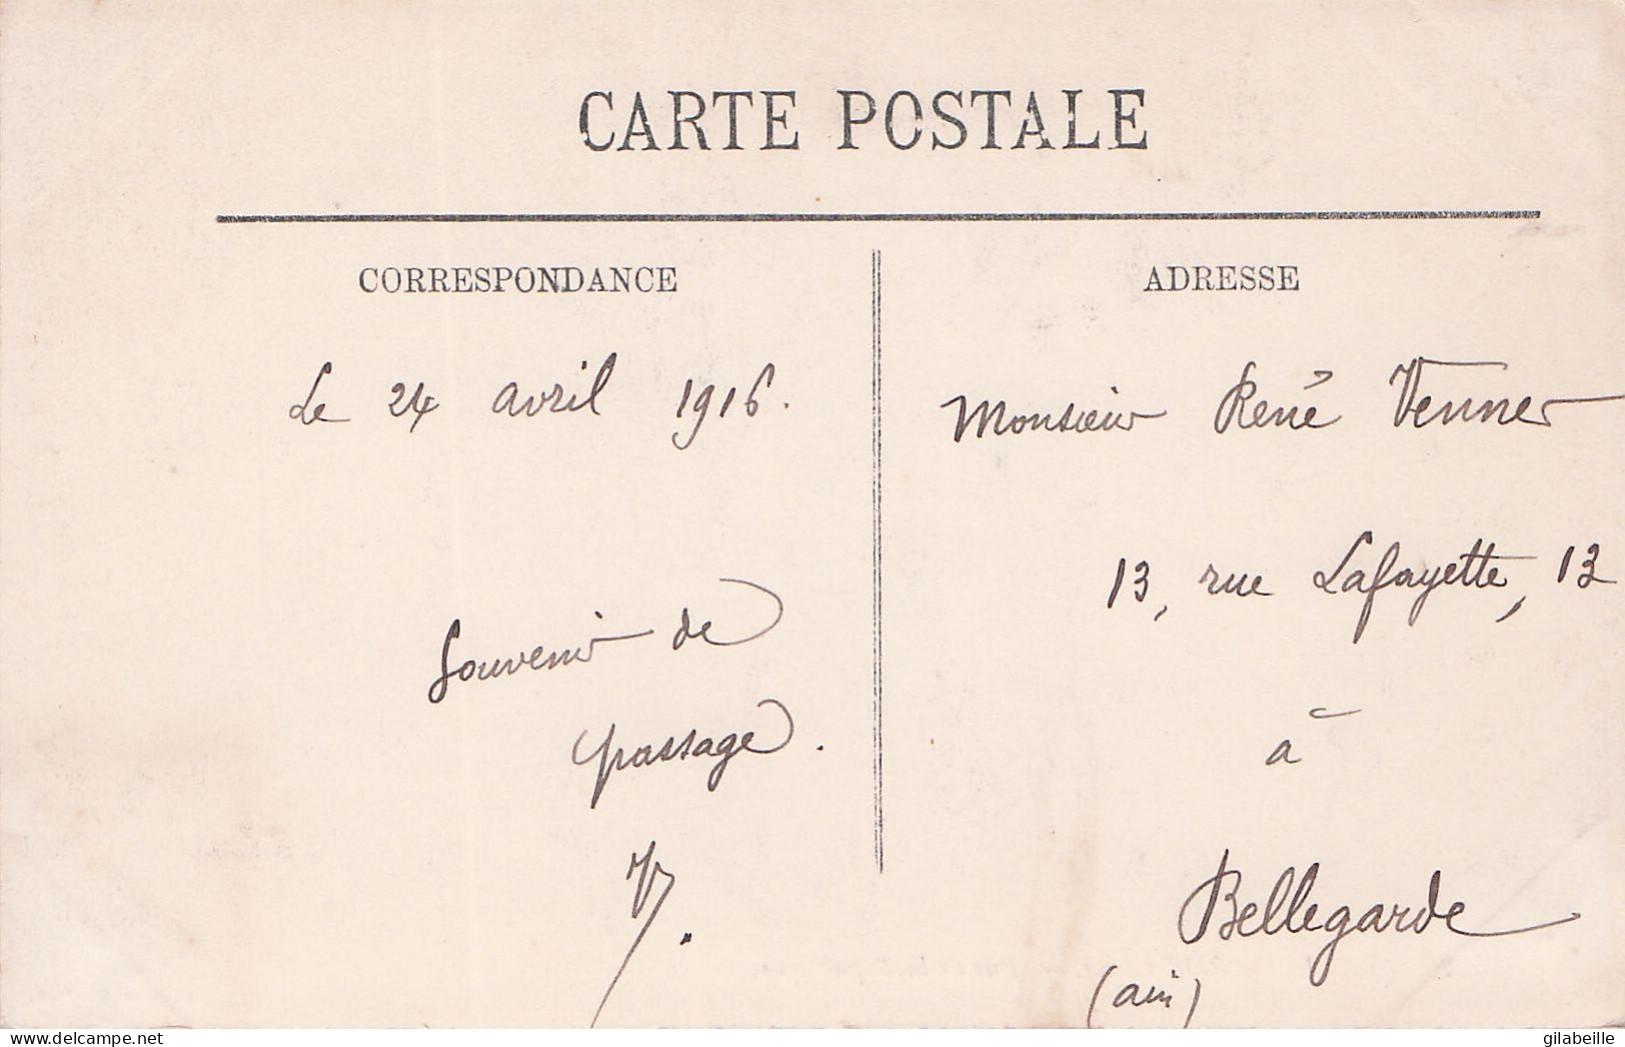 CARTE POSTALE
CORRESPONDANCE
Le 24 avril 1916.
Souvenir de
passage.
V.
ADRESSE
Monsieur René Venner
13, rue Lafayette, 13
à
Bellegarde
(ain)
gilabeille